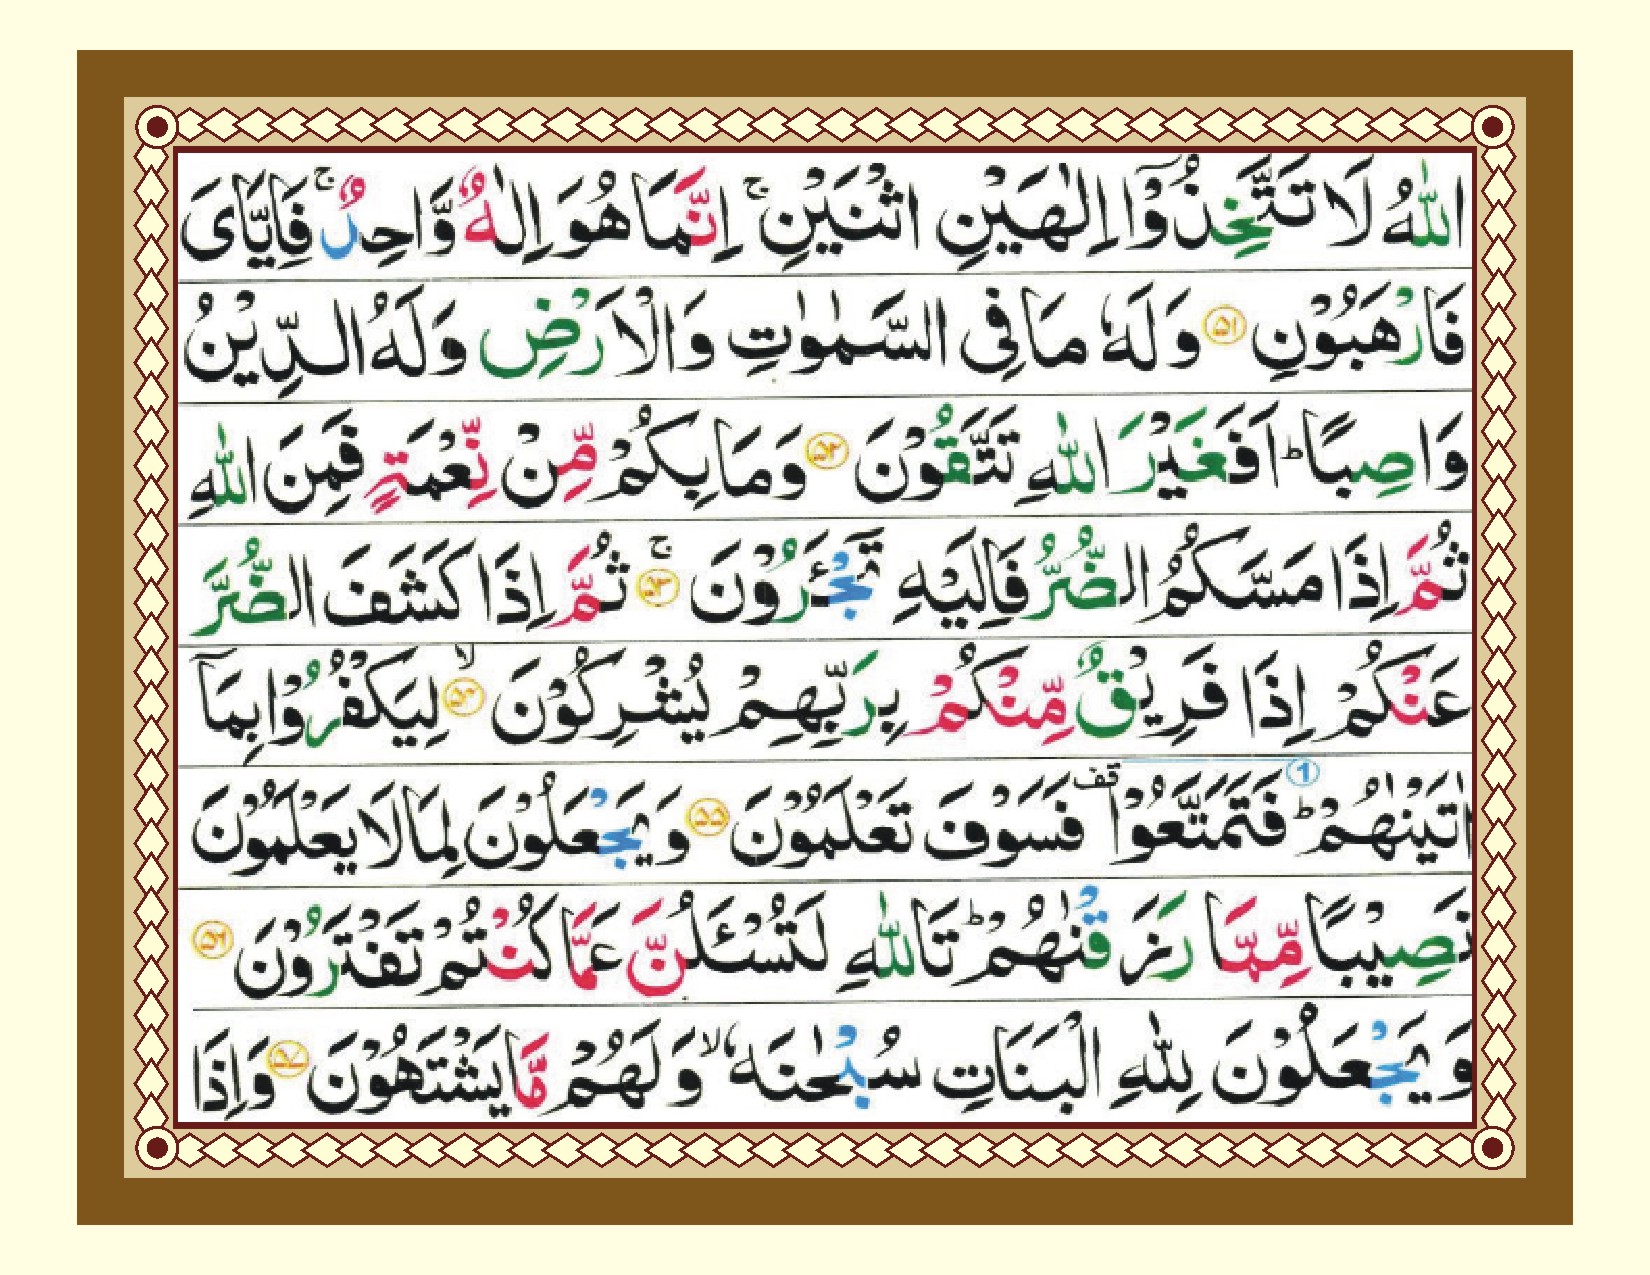 اللّٰهُ لَا تَتَّخِذُوْۤا اِلٰهَيْنِ اثْنَيْنِ ۚ اِنَّمَا هُوَ اِلٰهٌ وَّاحِدٌ ۚ فَاِيَّايَ
فَارْهَبُوْنِ ﴿۵۱﴾ وَلَهٗ مَا فِي السَّمٰوٰتِ وَالْاَرْضِ وَلَهُ الدِّيْنُ
وَاصِبًا ؕ اَفَغَيْرَ اللّٰهِ تَتَّقُوْنَ ﴿۵۲﴾ وَمَا بِكُمْ مِّنْ نِّعْمَةٍ فَمِنَ اللّٰهِ
ثُمَّ اِذَا مَسَّكُمُ الضُّرُّ فَاِلَيْهِ تَجْـَٔرُوْنَ ۚ ﴿۵۳﴾ ثُمَّ اِذَا كَشَفَ الضُّرَّ
عَنْكُمْ اِذَا فَرِيْقٌ مِّنْكُمْ بِرَبِّهِمْ يُشْرِكُوْنَ ۙ ﴿۵۴﴾ لِيَكْفُرُوْا بِمَاۤ
اٰتَيْنٰهُمْ ؕ 1 فَتَمَتَّعُوْا قف فَسَوْفَ تَعْلَمُوْنَ ﴿۵۵﴾ وَيَجْعَلُوْنَ لِمَا لَا يَعْلَمُوْنَ
نَصِيْبًا مِّمَّا رَزَقْنٰهُمْ ؕ تَاللّٰهِ لَتُسْـَٔلُنَّ عَمَّا كُنْتُمْ تَفْتَرُوْنَ ﴿۵۶﴾
وَيَجْعَلُوْنَ لِلّٰهِ الْبَنَاتِ سُبْحٰنَهٗ ۙ وَلَهُمْ مَّا يَشْتَهُوْنَ ﴿۵۷﴾ وَاِذَا